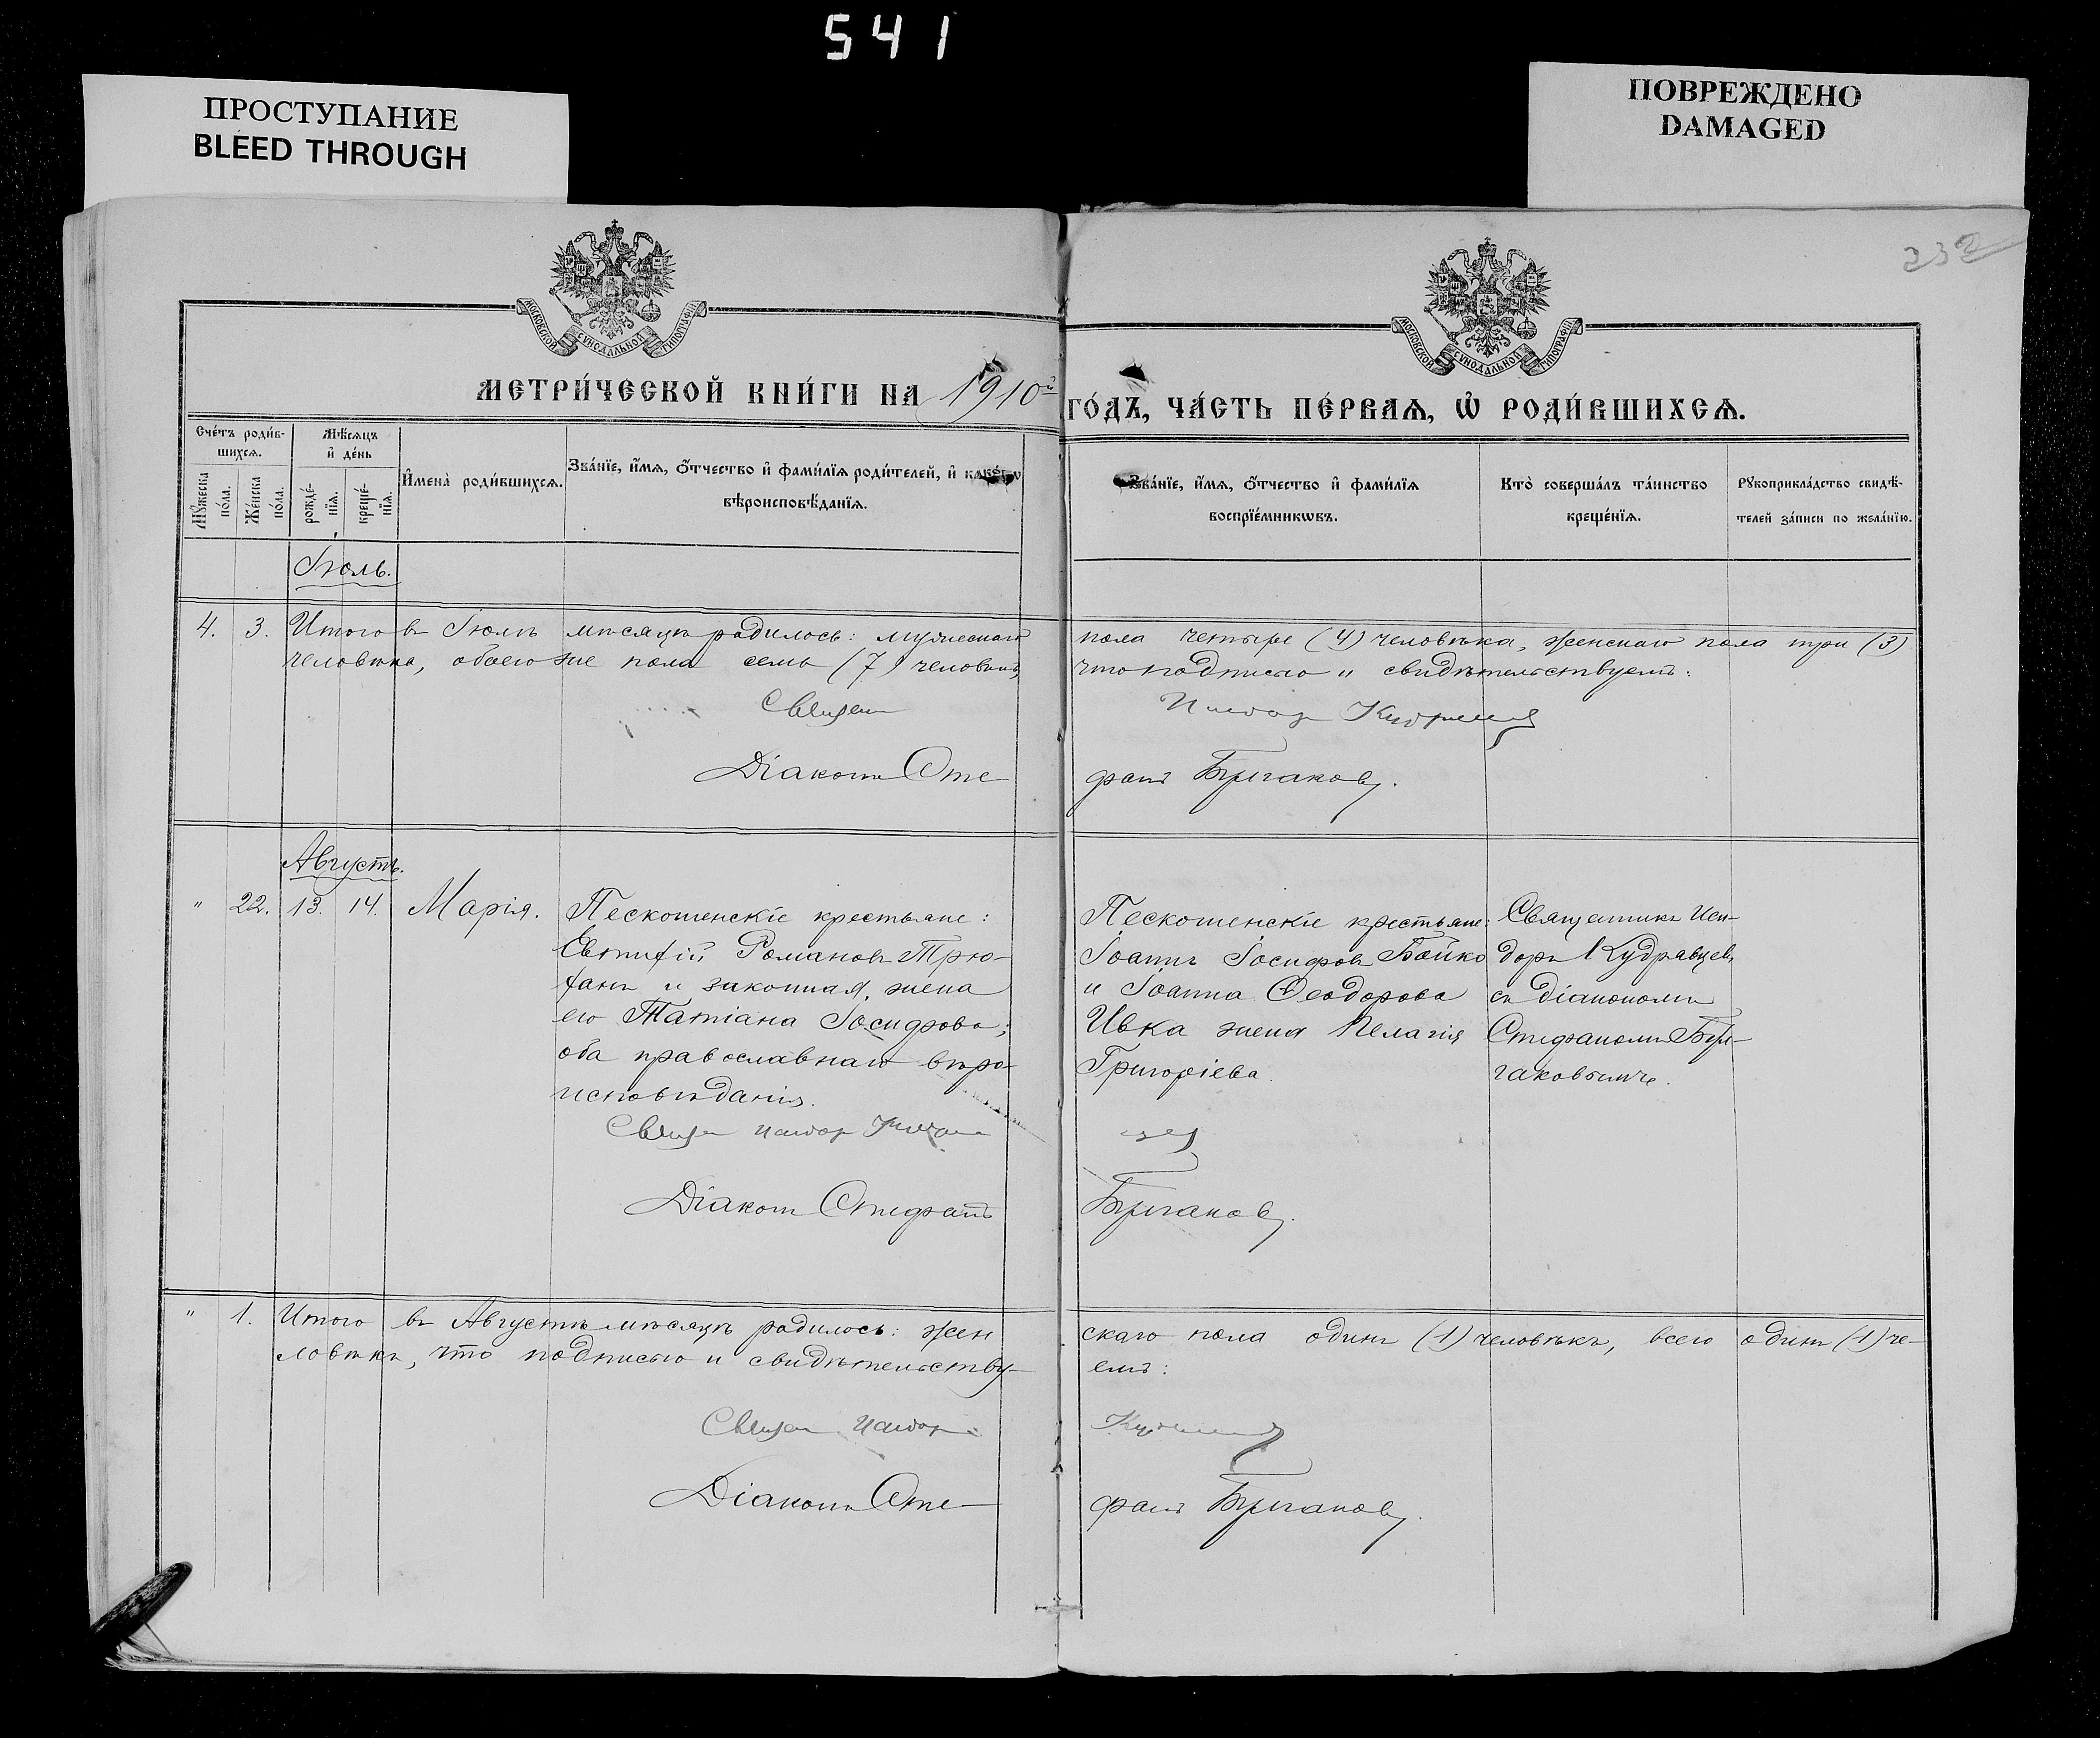 541
ПРОСТУПАНИЕ
BLEED THROUGH
ПОВРЕЖДЕНО
DAMAGED
232
МОСКОВСКОЙ СУНОДАЛЬНОЙ ТИПОГРАФІИ
МОСКОВСКОЙ СУНОДАЛЬНОЙ ТИПОГРАФІИ
МЕТРИ́ЧЕСКОЙ КНИ́ГИ НА 1910й
ГО́ДЪ, ЧА́СТЬ ПЕ́РВАѦ, Ѡ҆ РОДИ́ВШИХСѦ.
Сче́тъ роди́в-
шихсѧ.
Мѣ́сѧцъ
и҆ де́нь
Мꙋ́жеска
по́ла.
Же́нска
по́ла.
рожде́-
нїѧ.
креще́-
нїѧ.
И҆мена̀ роди́вшихсѧ.
Зва́нїе, и҆́мѧ, ѻ҆́тчество и҆ фами́лїѧ роди́телей, и҆ како́гѡ
вѣроисповѣ́данїѧ.
Зва́нїе, и҆́мѧ, ѻ҆́тчество и҆ фами́лїѧ
воспрїе́мникѡвъ.
Кто̀ соверша́лъ та́инство
креще́нїѧ.
Рꙋкоприкла́дство свидѣ́-
телей за́писи по жела́нїю.
Іюль.
4. 3. Итого въ Іюлѣ мѣсяцѣ родилось: мужескаго
пола четыре (4) человѣка, женскаго пола три (3)
человѣка, обоего же пола семь (7) человѣкъ,
что подписью и свидѣтельствуемъ:
Діаконъ Сте
фанъ Булгаковъ.
Августъ.
" 22. 13. 14. Марія.
Пескошенскіе крестьяне:
Евтифій Романовъ Трю-
фанъ и законная жена
его Татіана Іосифова;
оба православнаго вѣро-
исповѣданія.
Пескошенскіе крестьяне:
Іоаннъ Іосифовъ Бойко
и Іоанна Ѳеодорова
Ивка жена Пелагія
Григоріева.
Священникъ Иси-
доръ Кудрявцевъ
съ діакономъ
Стефаномъ Бул-
гаковымъ.
Діаконъ Стефанъ
Булгаковъ.
" 1. Итого въ Августѣ мѣсяцѣ родилось: жен
скаго пола одинъ (1) человѣкъ, всего одинъ (1) че-
ловѣкъ, что подписью и свидѣтельству-
емъ:
Діаконъ Сте-
фанъ Булгаковъ.